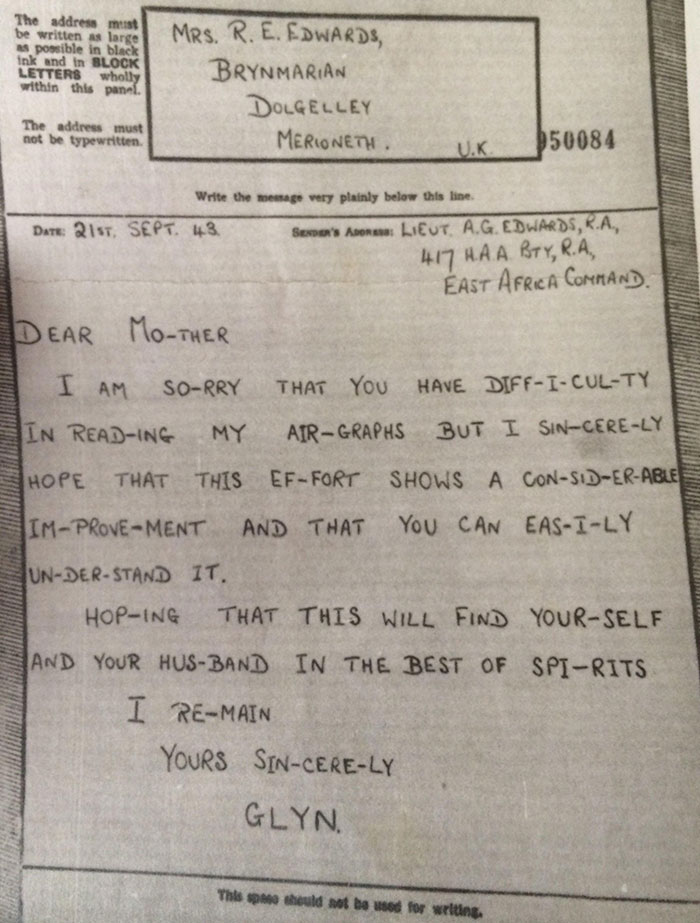 The address must
be written as large
as possible in black
ink and in BLOCK
LETTERS wholly
within this panel.
The address must
not be typewritten.
MRS. R. E. EDWARDS,
BRYNMARIAN
DOLGELLEY
MERIONETH. U.K.
950084
Write the message very plainly below this line.
DATE: 21ST. SEPT. 43. SENDER'S ADDRESS: LIEUT. A.G. EDWARDS, R.A.,
417 H A A BTY, R.A,
EAST AFRICA COMMAND.
DEAR MO-THER
I AM SO-RRY THAT YOU HAVE DIFF-I-CUL-TY
IN READ-ING MY AIR-GRAPHS BUT I SIN-CERE-LY
HOPE THAT THIS EF-FORT SHOWS A CON-SID-ER-ABLE
IM-PROVE-MENT AND THAT YOU CAN EAS-I-LY
UN-DER-STAND IT.
HOP-ING THAT THIS WILL FIND YOUR-SELF
AND YOUR HUS-BAND IN THE BEST OF SPI-RITS
I RE-MAIN
YOURS SIN-CERE-LY
GLYN.
This space should not be used for writing.